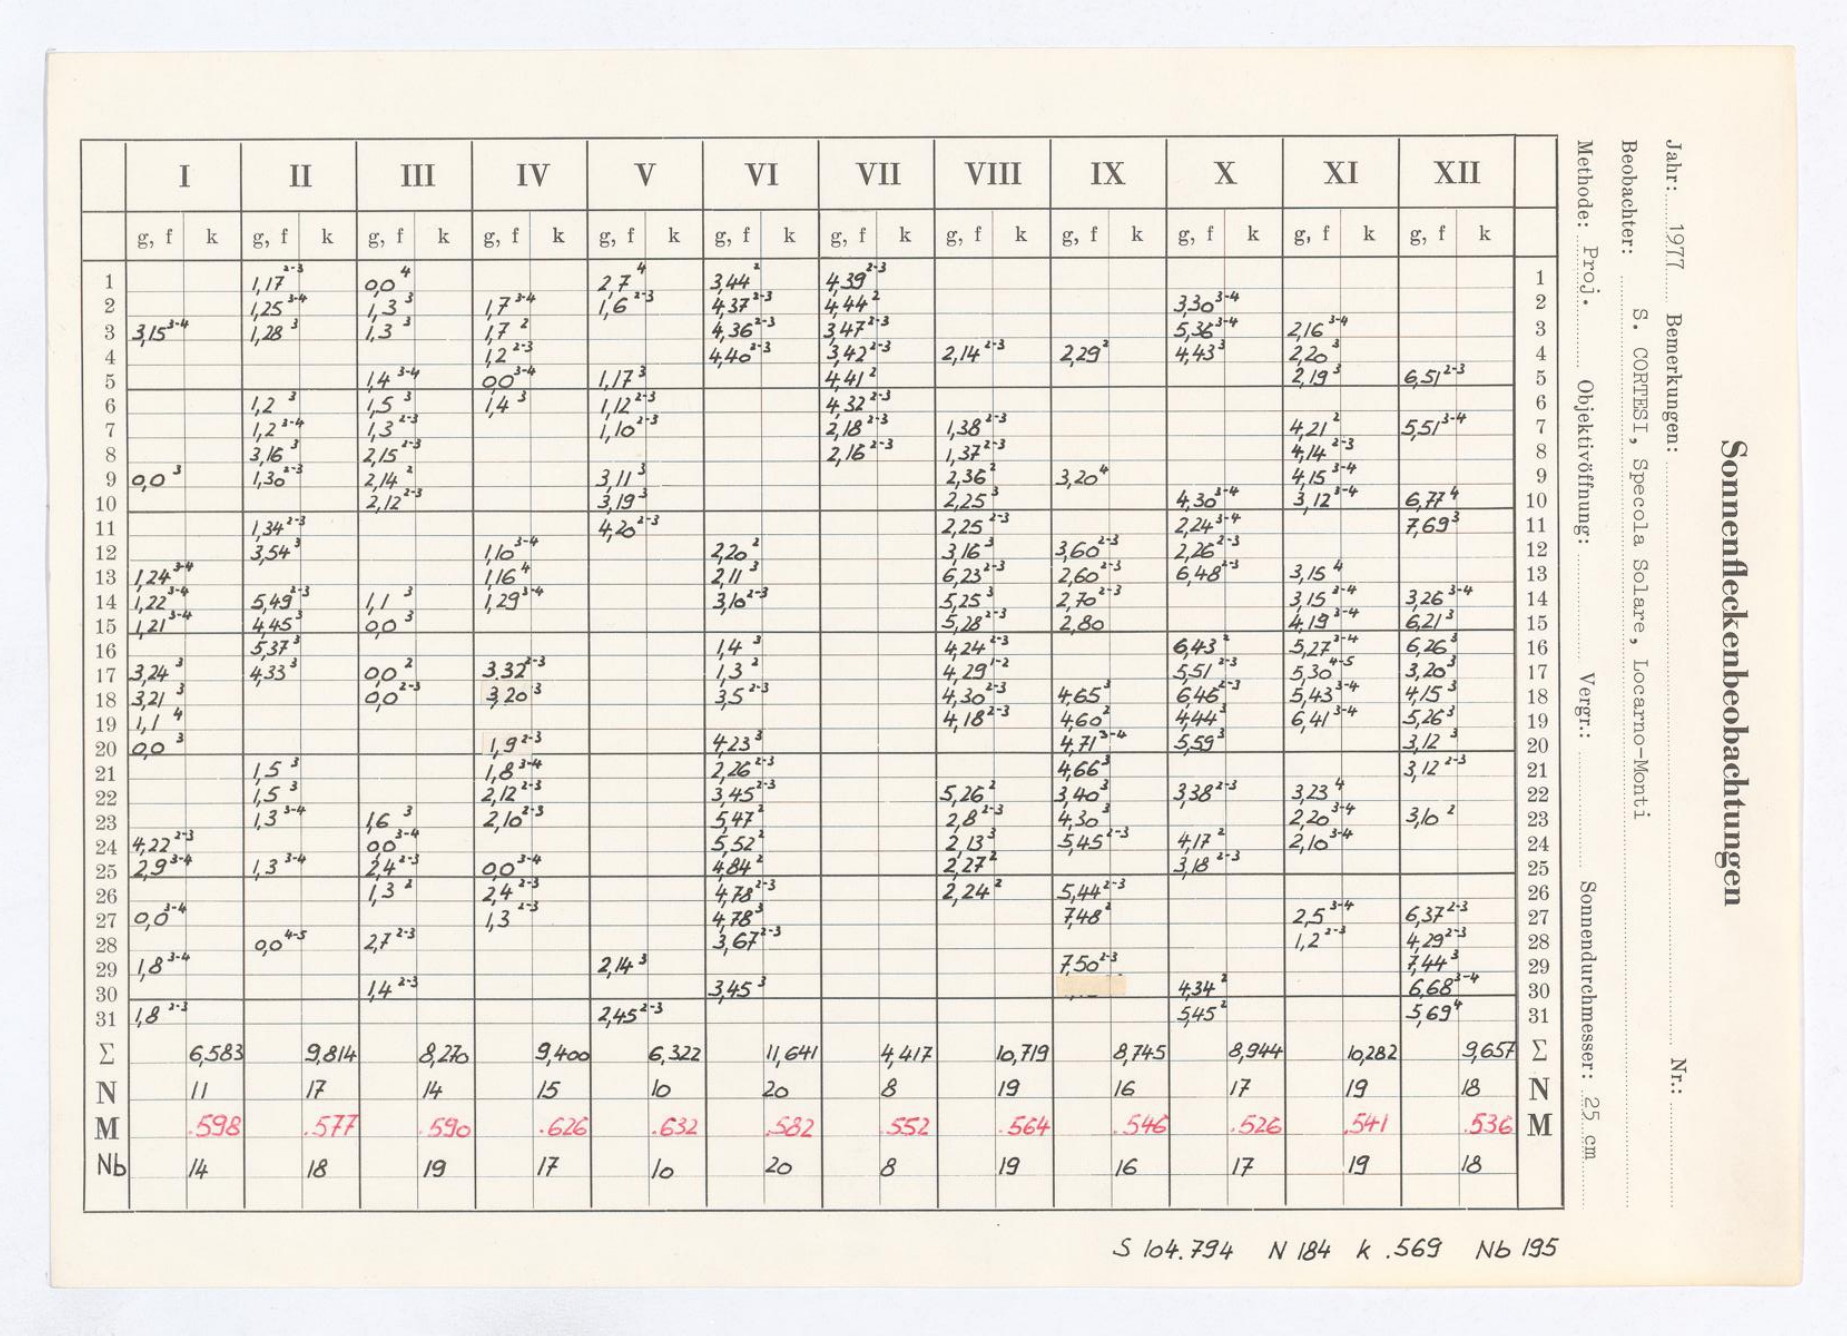 Sonnenfleckenbeobachtungen
Jahr: 1977 Bemerkungen: Nr.:
Beobachter: S. CORTESI, Specola Solare, Locarno-Monti
Methode: Proj. Objektivöffnung: Vergr.: Sonnendurchmesser: 25 cm
I II III IV V VI VII VIII IX X XI XII
g, f k g, f k g, f k g, f k g, f k g, f k g, f k g, f k g, f k g, f k g, f k g, f k
1 1,17 2-3 0,0 4 2,7 4 3,44 2 4,39 2-3 1
2 1,25 3-4 1,3 3 1,7 3-4 1,6 2-3 4,37 2-3 4,44 2 3,30 3-4 2
3 3,15 3-4 1,28 3 1,3 3 1,7 2 4,36 2-3 3,47 2-3 5,36 3-4 2,16 3-4 3
4 1,2 2-3 4,40 2-3 3,42 2-3 2,14 2-3 2,29 2 4,43 3 2,20 3 4
5 1,4 3-4 0,0 3-4 1,17 3 4,41 2 2,19 3 6,51 2-3 5
6 1,2 3 1,5 3 1,4 3 1,12 2-3 4,32 2-3 6
7 1,2 3-4 1,3 2-3 1,10 2-3 2,18 2-3 1,38 2-3 4,21 2 5,51 3-4 7
8 3,16 3 2,15 2-3 2,16 2-3 1,37 2-3 4,14 2-3 8
9 0,0 3 1,30 2-3 2,14 2 3,11 3 2,36 2 3,20 4 4,15 3-4 9
10 2,12 2-3 3,19 3 2,25 3 4,30 3-4 3,12 3-4 6,77 4 10
11 1,34 2-3 4,20 2-3 2,25 2-3 2,24 3-4 7,69 3 11
12 3,54 3 1,10 3-4 2,20 2 3,16 3 3,60 2-3 2,26 2-3 12
13 1,24 3-4 1,16 4 2,11 3 6,23 2-3 2,60 2-3 6,48 2-3 3,15 4 13
14 1,22 3-4 5,49 2-3 1,1 3 1,29 3-4 3,10 2-3 5,25 3 2,70 2-3 3,15 3-4 3,26 3-4 14
15 1,21 3-4 4,45 3 0,0 3 5,28 2-3 2,80 4,19 3-4 6,21 3 15
16 5,37 3 1,4 3 4,24 2-3 6,43 2 5,27 3-4 6,26 3 16
17 3,24 3 4,33 3 0,0 2 3,32 2-3 1,3 2 4,29 1-2 5,51 2-3 5,30 4-5 3,20 3 17
18 3,21 3 0,0 2-3 3,20 3 3,5 2-3 4,30 2-3 4,65 3 6,46 2-3 5,43 3-4 4,15 3 18
19 1,1 4 4,18 2-3 4,60 2 4,44 3 6,41 3-4 5,26 3 19
20 0,0 3 1,9 2-3 4,23 3 4,71 3-4 5,59 3 3,12 3 20
21 1,5 3 1,8 3-4 2,26 2-3 4,66 3 3,12 2-3 21
22 1,5 3 2,12 2-3 3,45 2-3 5,26 2 3,40 3 3,38 2-3 3,23 4 22
23 1,3 3-4 1,6 3 2,10 2-3 5,47 2 2,8 2-3 4,30 3 2,20 3-4 3,10 2 23
24 4,22 2-3 0,0 3-4 5,52 2 2,13 3 5,45 2-3 4,17 2 2,10 3-4 24
25 2,9 3-4 1,3 3-4 2,4 2-3 0,0 3-4 4,84 2 2,27 2 3,18 2-3 25
26 1,3 2 2,4 2-3 4,78 2-3 2,24 2 5,44 2-3 26
27 0,0 3-4 1,3 2-3 4,78 3 7,48 2 2,5 3-4 6,37 2-3 27
28 0,0 4-5 2,7 2-3 3,67 2-3 1,2 2-3 4,29 2-3 28
29 1,8 3-4 2,14 3 7,50 2-3 7,44 3 29
30 1,4 2-3 3,45 3 4,34 2 6,68 3-4 30
31 1,8 2-3 2,45 2-3 5,45 2 5,69 4 31
Σ 6,583 9,814 8,270 9,400 6,322 11,641 4,417 10,719 8,745 8,944 10,282 9,657 Σ
N 11 17 14 15 10 20 8 19 16 17 19 18 N
M .598 .577 .590 .626 .632 .582 .552 .564 .546 .526 .541 .536 M
Nb 14 18 19 17 10 20 8 19 16 17 19 18
S 104.794 N 184 k .569 Nb 195